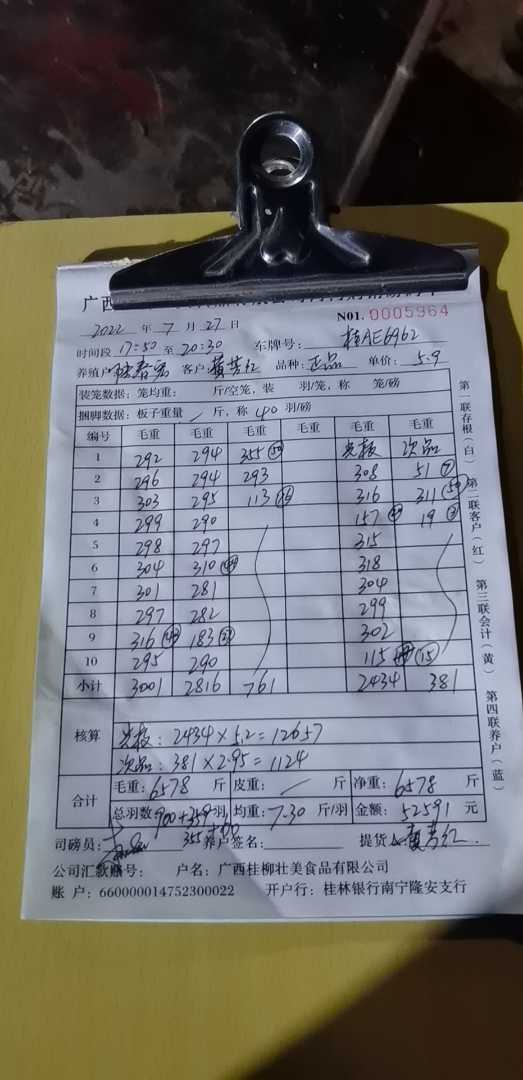 广西
N01. 0005964
2022 年 7 月 27 日
时间段 17:50 至 20:30 车牌号: 桂AE6962
养殖户: 客户: 黄芳红 品种: 正品 单价: 5.9
装笼数据: 笼均重: 斤/空笼, 装 羽/笼, 称 笼/磅
捆脚数据: 板子重量 / 斤, 称 40 羽/磅
编号 毛重 毛重 毛重 毛重 毛重 毛重
1 292 294 355 (50) 光板 次品
2 296 294 293 308 51 (7)
3 303 295 113 316 311 (50)
4 299 290 157 19 (3)
5 298 297 315
6 304 310 318
7 301 281 304
8 297 282 299
9 316 183 302
10 295 290 115 (15)
小计 3001 2816 761 2434 381
核算 光板: 2434 × 5.2 = 12657
次品: 381 × 2.95 = 1124
合计 毛重: 6578 斤 皮重: / 斤 净重: 6578 斤
总羽数: 900+359 羽 均重: 7.30 斤/羽 金额: 52591 元
司磅员: 355 养户签名: 提货人: 黄芳红
公司汇款账号: 户名: 广西桂柳壮美食品有限公司
账 户: 660000014752300022 开户行: 桂林银行南宁隆安支行
第一联存根(白) 第二联客户(红) 第三联会计(黄) 第四联养户(蓝)